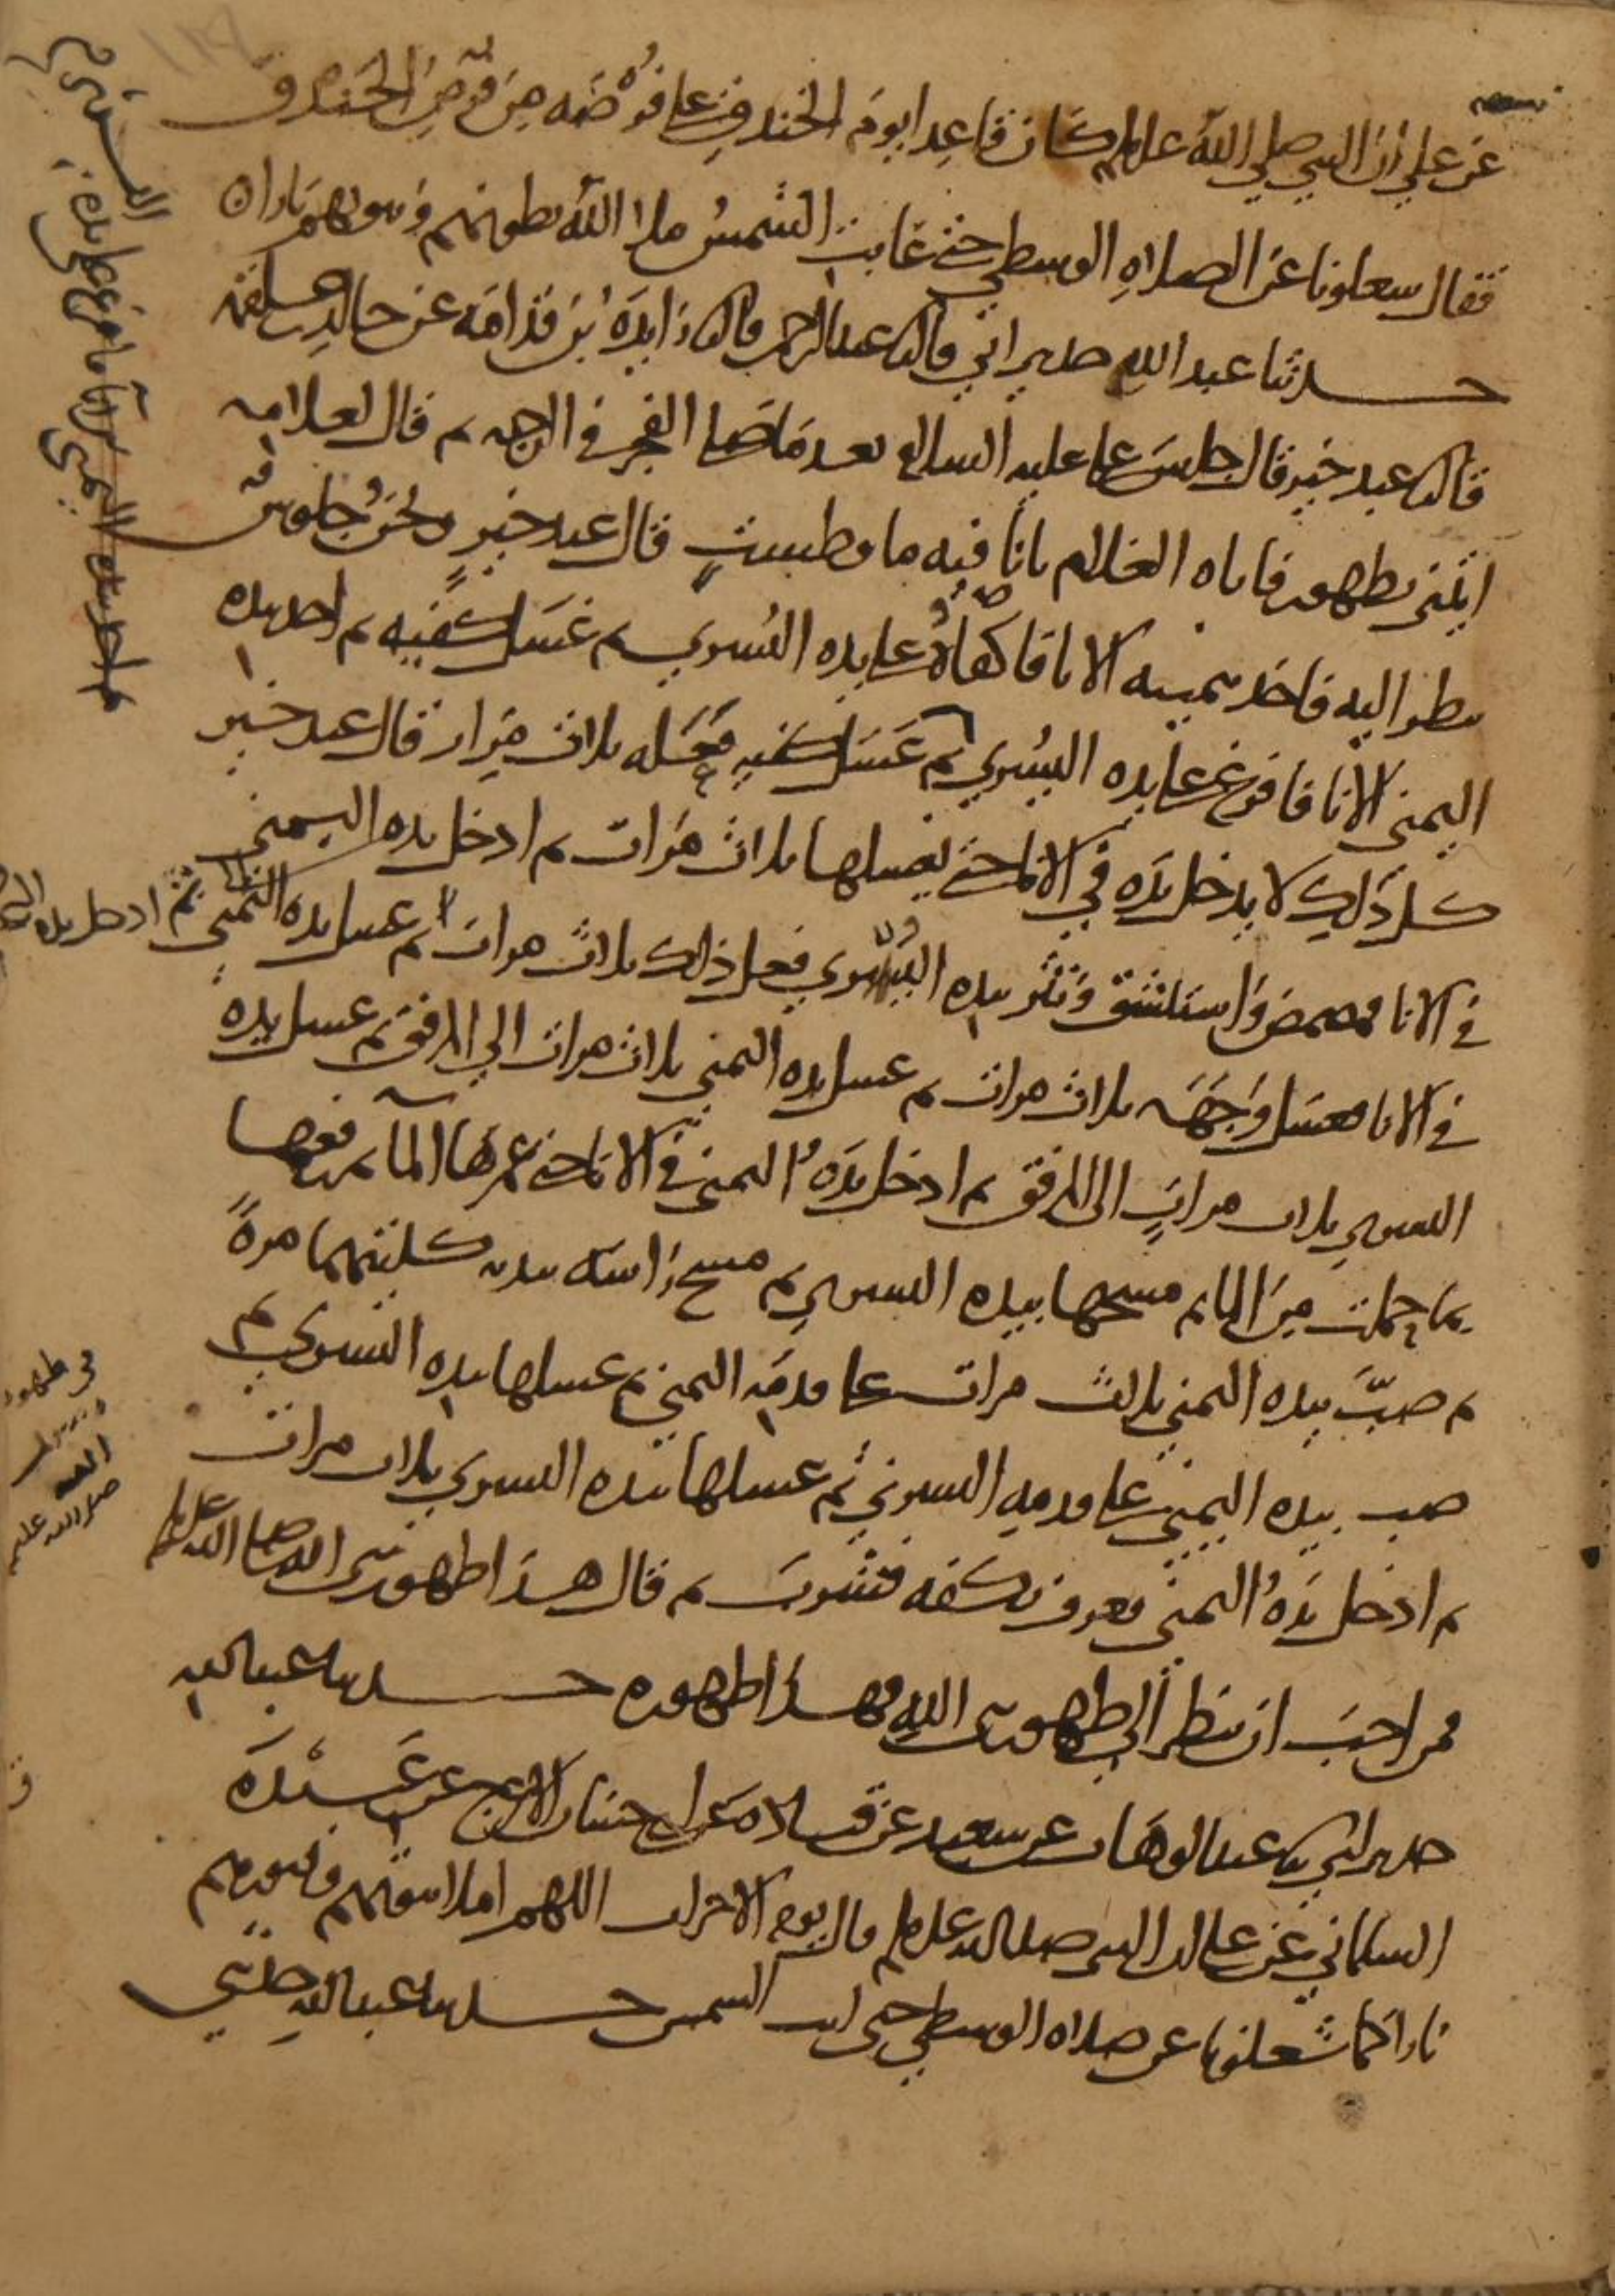 عن علي ان النبي صلي الله عليه وسلم كان قاعدا يوم الخندق علي فرضة من فرض الخندق
فقال شغلونا عن الصلاه الوسطي حتي غابت الشمس ملا الله بطونهم وبيوتهم نارا
حدثنا عبد الله حدثني ابي قال ثنا عبد الرحمن قال ثنا زايدة بن قدامة عن خالد بن علقمه
قال ثنا عبد خير قال جلس علي عليه السلام بعد ما صلي الفجر في الرحبه ثم قال لغلامه
ايتني بطهور فاتاه الغلام باناء فيه ما وطست قال عبد خير ونحن جلوس
ننظر اليه فاخذ بيمينه الانا فاكفاه علي يده اليسري ثم غسل كفيه ثم اخذ بيده
اليمني الانا فافرغ علي يده اليسري ثم غسل كفيه فعله ثلاث مرار قال عبد خير
كل ذلك لا يدخل يده في الانا حتي يغسلها ثلاث مرات ثم ادخل يده اليمني
في الانا فمضمض واستنشق ونثر بيده اليسري فعل ذلك ثلاث مرات ثم غسل يده اليمني ثم ادخل يده
في الانا فغسل وجهه ثلاث مرات ثم غسل يده اليمني ثلاث مرات الي المرفق ثم غسل يده
اليسري ثلاث مرات الي المرفق ثم ادخل يده اليمني في الانا حتي غمرها الما ثم رفعها
بما حملت من الما ثم مسحها بيده اليسري ثم مسح راسه بيديه كلتيهما مرة
ثم صب بيده اليمني ثلاث مرات علي قدمه اليمني ثم غسلها بيده اليسري ثم
صب بيده اليمني علي قدمه اليسري ثم غسلها بيده اليسري ثلاث مرات
ثم ادخل يده اليمني فغرف بكفه فشرب ثم قال هذا طهور نبي الله صلي الله عليه وسلم
فمن احب ان ينظر الي طهور نبي الله فهذا طهوره حدثنا عبد الله
حدثني ابي ثنا عبد الوهاب عن سعيد عن قتادة عن ابي حسان الاعرج عن عبيدة
السلماني عن علي ان النبي صلي الله عليه وسلم قال يوم الاحزاب اللهم املا بيوتهم وقبورهم
نارا كما شغلونا عن صلاه الوسطي حتي ابت الشمس حدثنا عبد الله حدثني
ثم اخذ بيده اليمني الانا فافرغ علي يده اليسري
في طهور
رسول
الله
صلي الله عليه